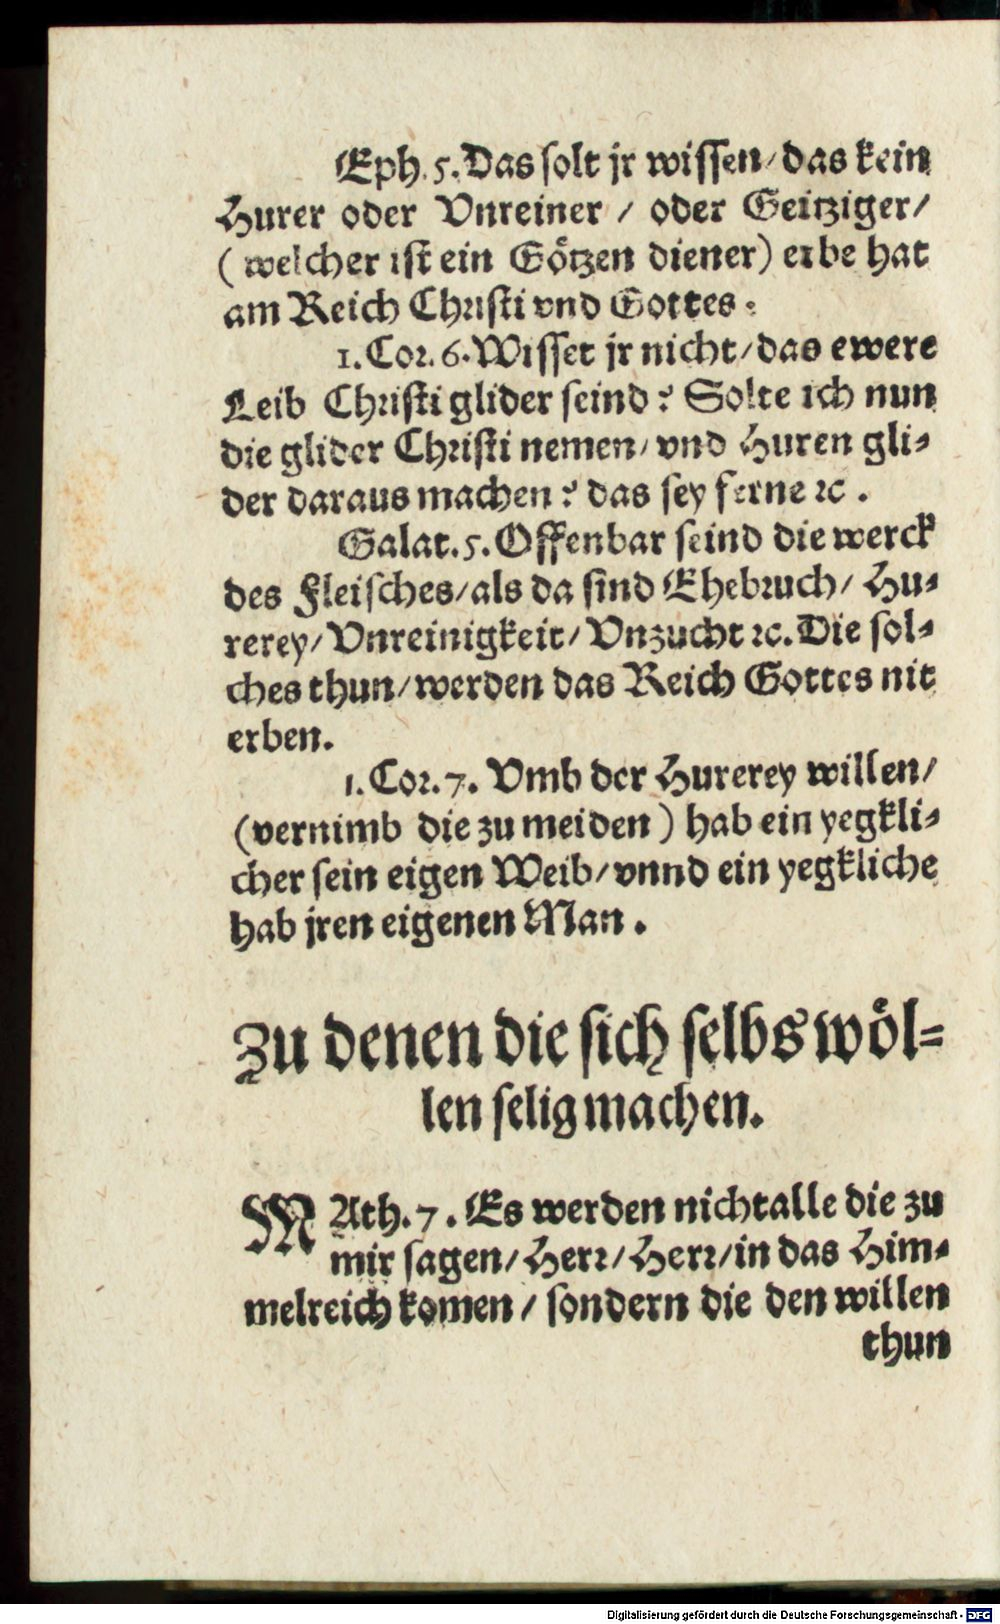 Eph. 5. Das solt jr wissen/ das kein
Hurer oder Vnreiner / oder Geitziger/
( welcher ist ein Götzen diener) erbe hat
am Reich Christi vnd Gottes.
1. Cor. 6. Wisset jr nicht/ das ewere
Leib Christi glider seind? Solte ich nun
die glider Christi nemen/ vnd Huren gli-
der daraus machen? das sey ferne ꝛc .
Galat. 5. Offenbar seind die werck
des Fleisches/ als da sind Ehebruch/ Hu-
rerey/ Vnreinigkeit/ Vnzucht ꝛc. Die sol-
ches thun/ werden das Reich Gottes nit
erben.
1. Cor. 7. Vmb der Hurerey willen/
(vernimb die zu meiden ) hab ein yegkli-
cher sein eigen Weib/ vnnd ein yegkliche
hab jren eigenen Man .
Zu denen die sich selbs wöl-
len selig machen.
MAth. 7. Es werden nicht alle die zu
mir sagen/ Herr/ Herr/ in das Him-
melreich komen / sondern die den willen
thun
Digitalisierung gefördert durch die Deutsche Forschungsgemeinschaft - DFG